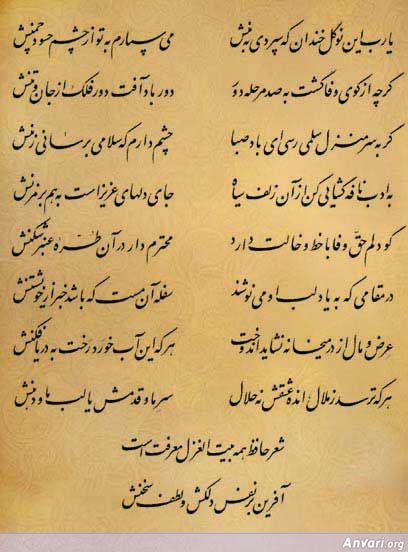 یارب این نوگل خندان که سپردی به منش می سپارم به تو از چشم حسود چمنش
گرچه از کوی وفا گشت به صد مرحله دور دور باد آفت دور فلک از جان و تنش
گر به سرمنزل سلمی رسی ای باد صبا چشم دارم که سلامی برسانی ز منش
به ادب نافه گشایی کن از آن زلف سیاه جای دلهای عزیز است به هم بر مزنش
گو دلم حق وفا با خط و خالت دارد محترم دار در آن طره عنبر شکنش
در مقامی که به یاد لب او می نوشند سفله آن مست که باشد خبر از خویشتنش
عرض و مال از در میخانه نشاید اندوخت هر که این آب خورد رخت به دریا فکنش
هر که ترسد ز ملال انده عشقش نه حلال سر ما و قدمش یا لب ما و دهنش
شعر حافظ همه بیت الغزل معرفت است
آفرین بر نفس دلکش و لطف سخنش
Anvari.org